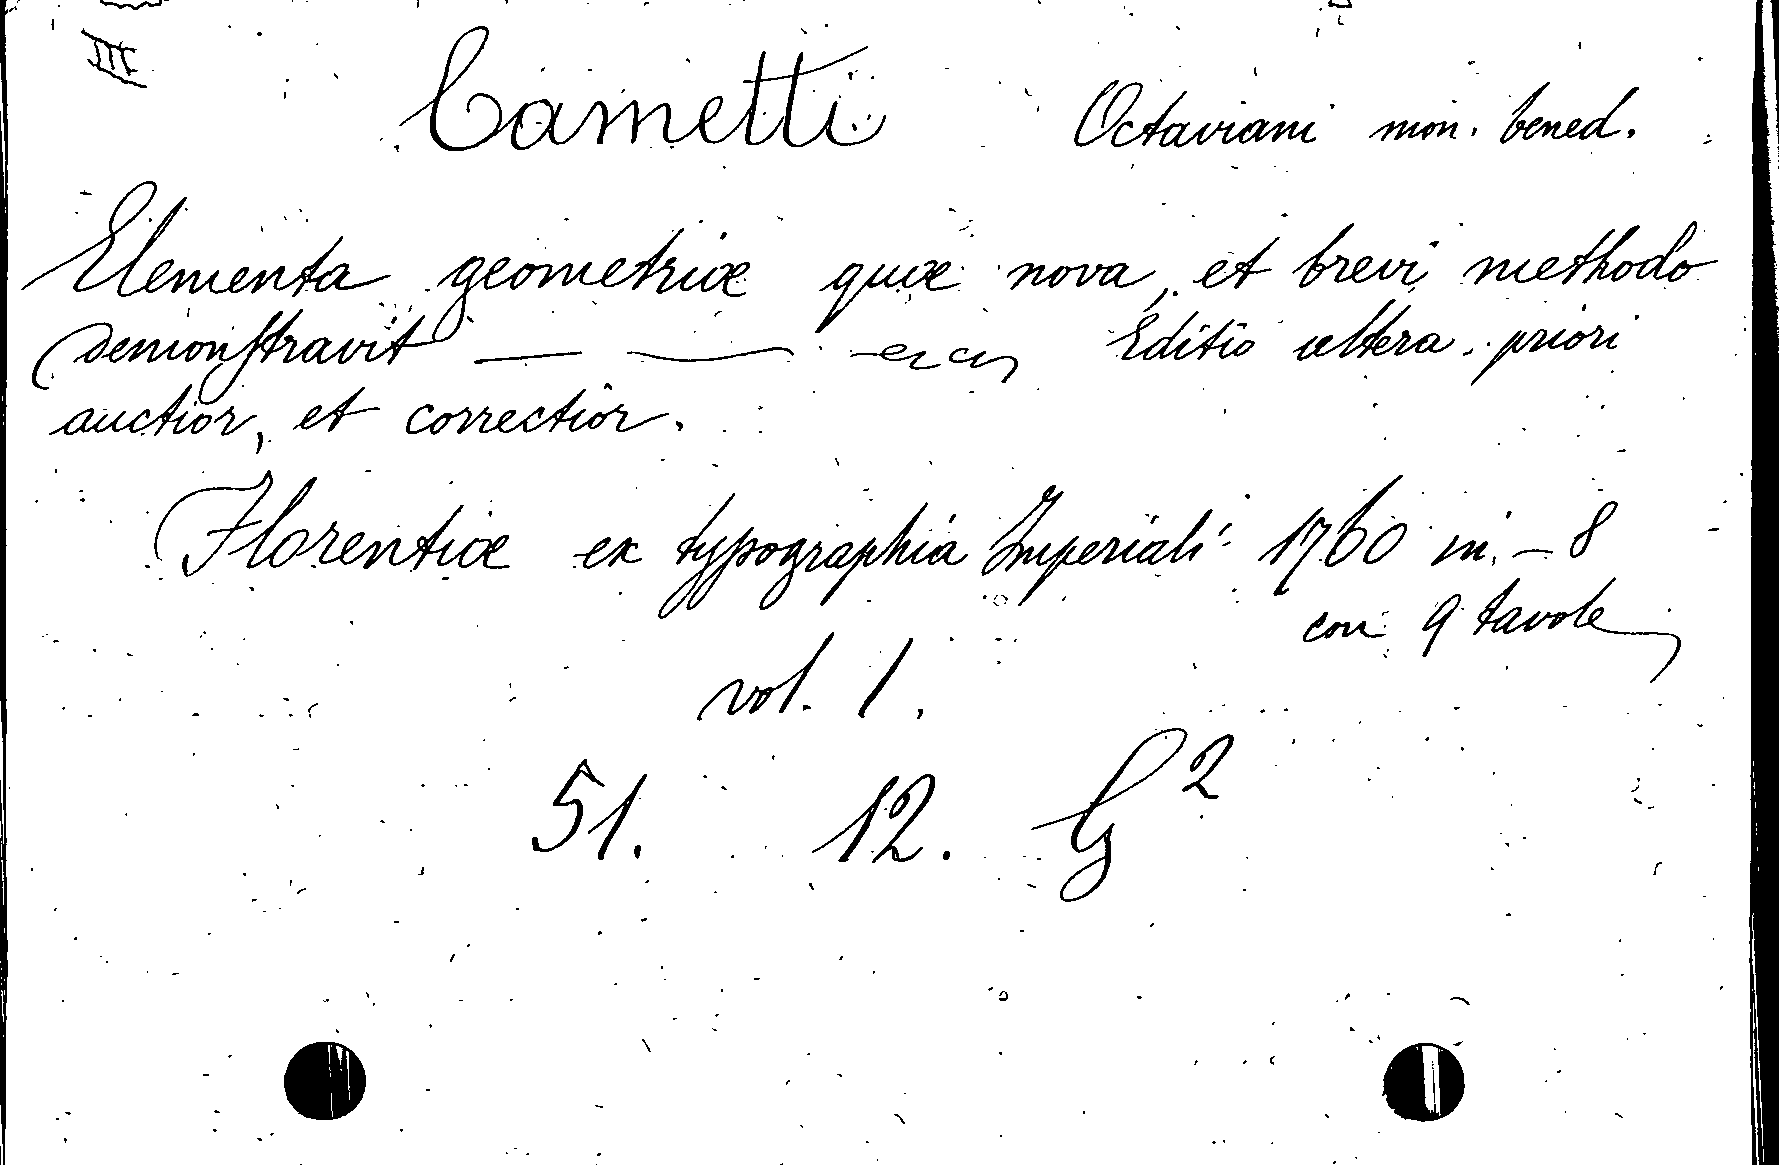 III
Cametti Octaviani mon. bened.
Elementa geometriæ quæ nova, et brevi methodo
demonstravit — — Editio altera priori
auctior, et correctior.
Florentiæ ex typographia Imperiali 1760 in-8
con 9 tavole
vol. 1.
51. 12. G²